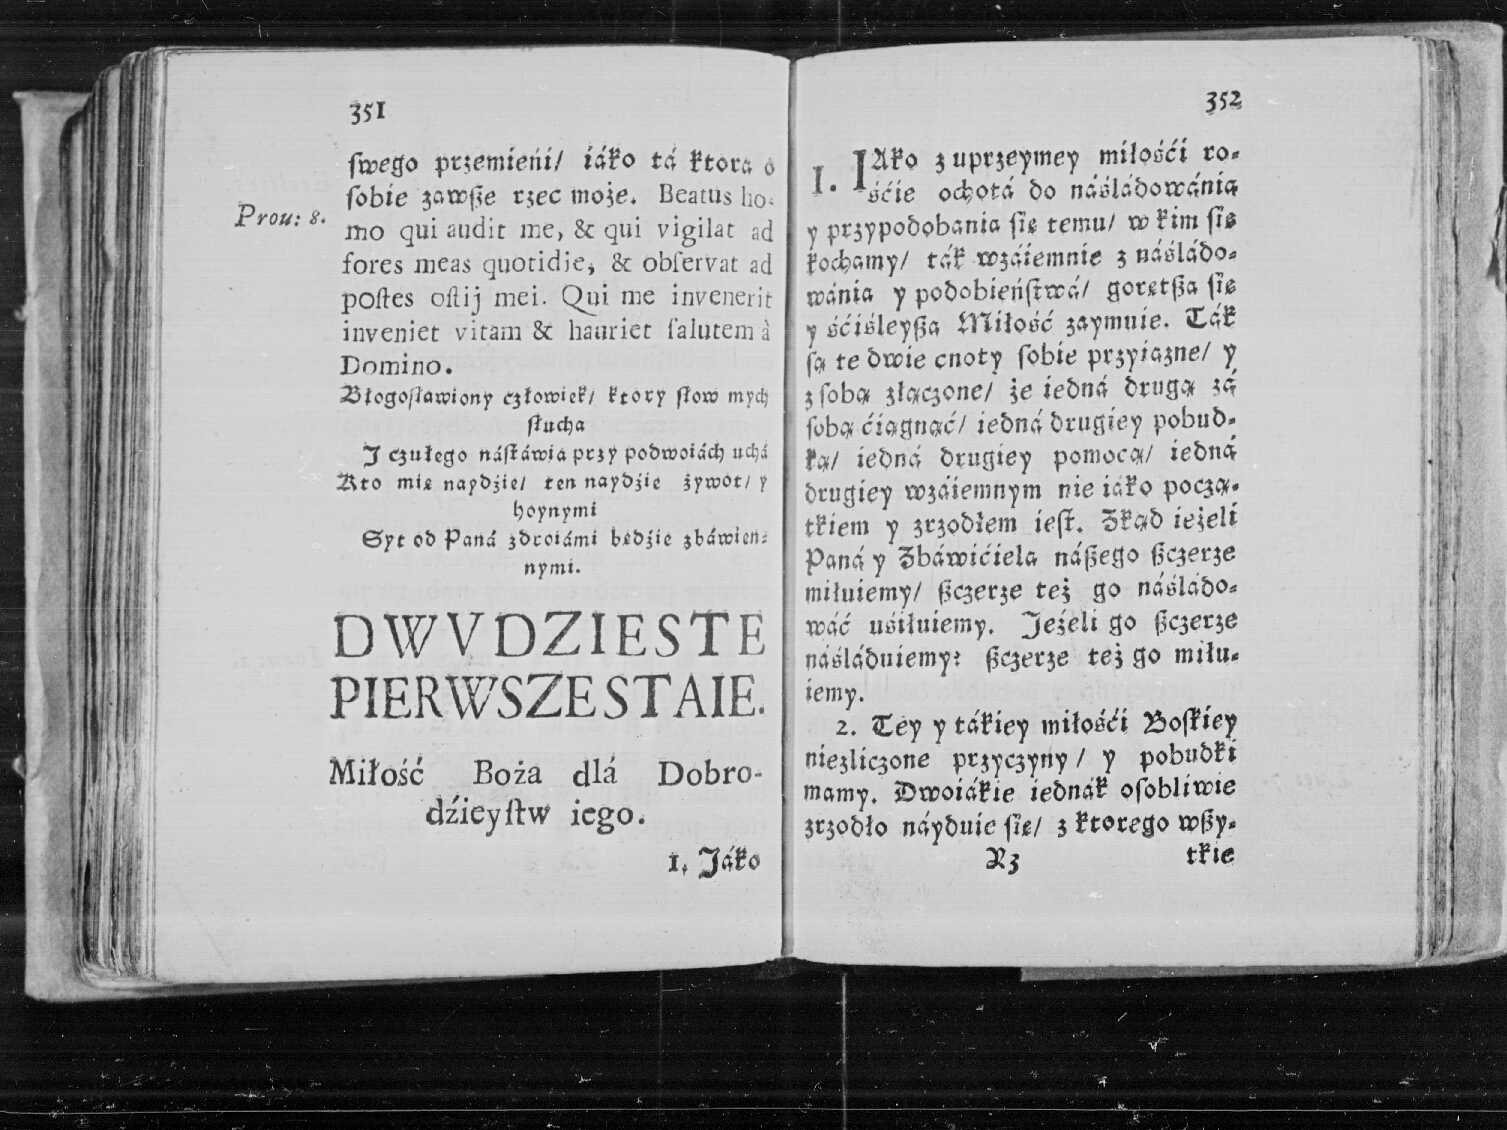 351
ſwego przemieńi/ iáko tá ktora o
ſobie zawſze rzec może. Beatus ho-
Prou: 8.
mo qui audit me, & qui vigilat ad
fores meas quotidie, & obſervat ad
poſtes oſtij mei. Qui me invenerit
inveniet vitam & hauriet ſalutem à
Domino.
Błogoſławiony człowiek/ ktory ſłow mych
ſłucha
J czułego náſtáwia przy podwoiách uchá
Kto mię naydźie/ ten naydźie żywot/ y
hoynymi
Syt od Paná zdroiámi będźie zbáwien-
nymi.
DWVDZIESTE
PIERWSZE STAIE.
Miłość Boża dlá Dobro-
dźieyſtw iego.
1. Jáko
352
1. IAko z uprzeymey miłośći ro-
śćie ochotá do náśládowánia
y przypodobania ſię temu/ w kim ſię
kochamy/ ták wzáiemnie z náśládo-
wánia y podobieńſtwá/ gorętſza ſię
y śćiśleyſza Miłość zaymuie. Ták
ſą te dwie cnoty ſobie przyiazne/ y
z ſobą złączone/ że iedná drugą zá
ſobą ćiągnąć/ iedná drugiey pobud-
ką/ iedná drugiey pomocą/ iedná
drugiey wzáiemnym nie iáko począ-
tkiem y zrzodłem ieſt. Zkąd ieżeli
Paná y Zbáwićiela náſzego ſzczerze
miłuiemy/ ſzczerze też go náśládo-
wáć uśiłuiemy. Jeżeli go ſzczerze
náśláduiemy: ſzczerze też go miłu-
iemy.
2. Tey y tákiey miłośći Boſkiey
niezliczone przyczyny/ y pobudki
mamy. Dwoiákie iednák oſobliwie
zrzodło náyduie ſię/ z ktorego wſzy-
R3 tkie